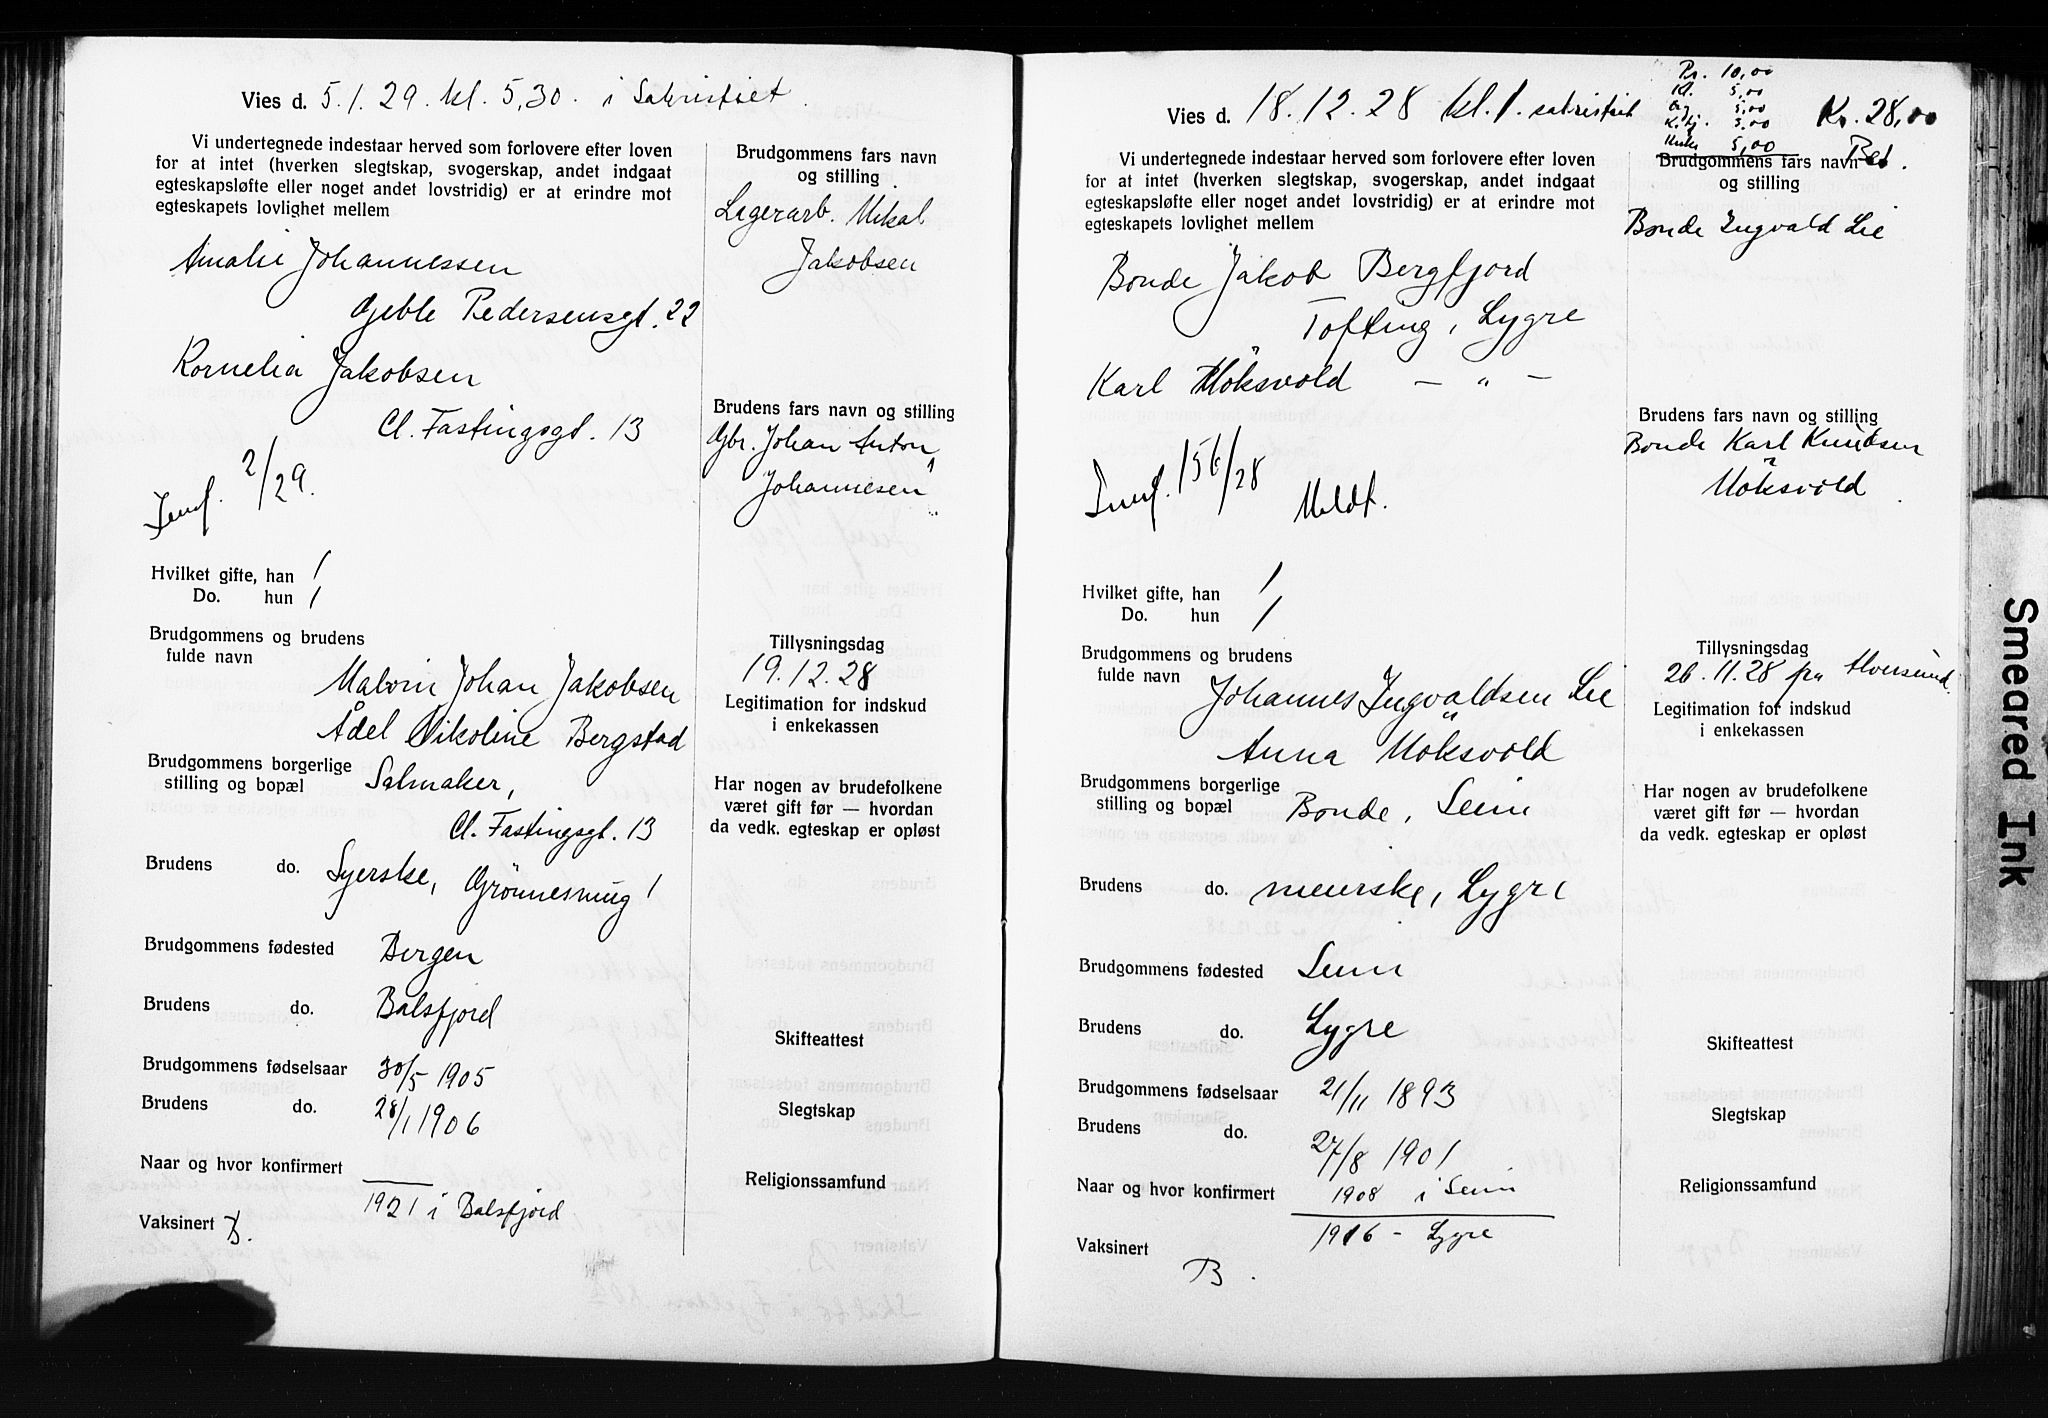 Vies d. 5.1.29. kl. 5,30. i Sakristiet.
Vi undertegnede indestaar herved som forlovere efter loven
for at intet (hverken slegtskap, svogerskap, andet indgaat
egteskapsløfte eller noget andet lovstridig) er at erindre mot
egteskapets lovlighet mellem
Amalie Johannessen
Gjeble Pedersensgt. 22
Kornelia Jakobsen
Cl. Fastingsgt. 13
2/29.
Hvilket gifte, han 1
Do. hun 1
Brudgommens og brudens
fulde navn
Malvin Johan Jakobsen
Ådel Nikoline Bergstad
Brudgommens borgerlige
stilling og bopæl Salmaker,
Cl. Fastingsgt. 13
Brudens do. Syerske, Grönnesmug 1
Brudgommens fødested Bergen
Brudens do. Balsfjord
Brudgommens fødselsaar 30/5 1905
Brudens do. 28/1 1906
Naar og hvor konfirmert
1921 i Balsfjord
Vaksinert B.
Brudgommens fars navn
og stilling
Lagerarb. Mikal
Jakobsen
Brudens fars navn og stilling
Gbr. Johan Anton
Johannesen
Tillysningsdag
19.12.28
Legitimation for indskud
i enkekassen
Har nogen av brudefolkene
været gift før — hvordan
da vedk. egteskap er opløst
Skifteattest
Slegtskap
Religionssamfund
Vies d. 18.12.28 kl. 1. sakristiet
Pr. 10,00
Kl. 5,00
Og 5,00
K.tj. 3,00
5,00
Kr. 28,00
Bet.
Vi undertegnede indestaar herved som forlovere efter loven
for at intet (hverken slegtskap, svogerskap, andet indgaat
egteskapsløfte eller noget andet lovstridig) er at erindre mot
egteskapets lovlighet mellem
Bonde Jakob Bergfjord
Tofting, Lygre
Karl Möksvold — " —
156/28 Meldt.
Hvilket gifte, han 1
Do. hun 1
Brudgommens og brudens
fulde navn
Johannes Ingvaldsen Lie
Anna Möksvold
Brudgommens borgerlige
stilling og bopæl Bonde, Seim
Brudens do. meierske, Lygre
Brudgommens fødested Seim
Brudens do. Lygre
Brudgommens fødselsaar 21/11 1893
Brudens do. 27/8 1901
Naar og hvor konfirmert 1908 i Seim
1916 - Lygre
Vaksinert
B.
Brudgommens fars navn
og stilling
Bonde Ingvald Lie
Brudens fars navn og stilling
Bonde Karl Knudsen
Möksvold
Tillysningsdag
26.11.28 fra Alversund.
Legitimation for indskud
i enkekassen
Har nogen av brudefolkene
været gift før — hvordan
da vedk. egteskap er opløst
Skifteattest
Slegtskap
Religionssamfund
Smeared Ink